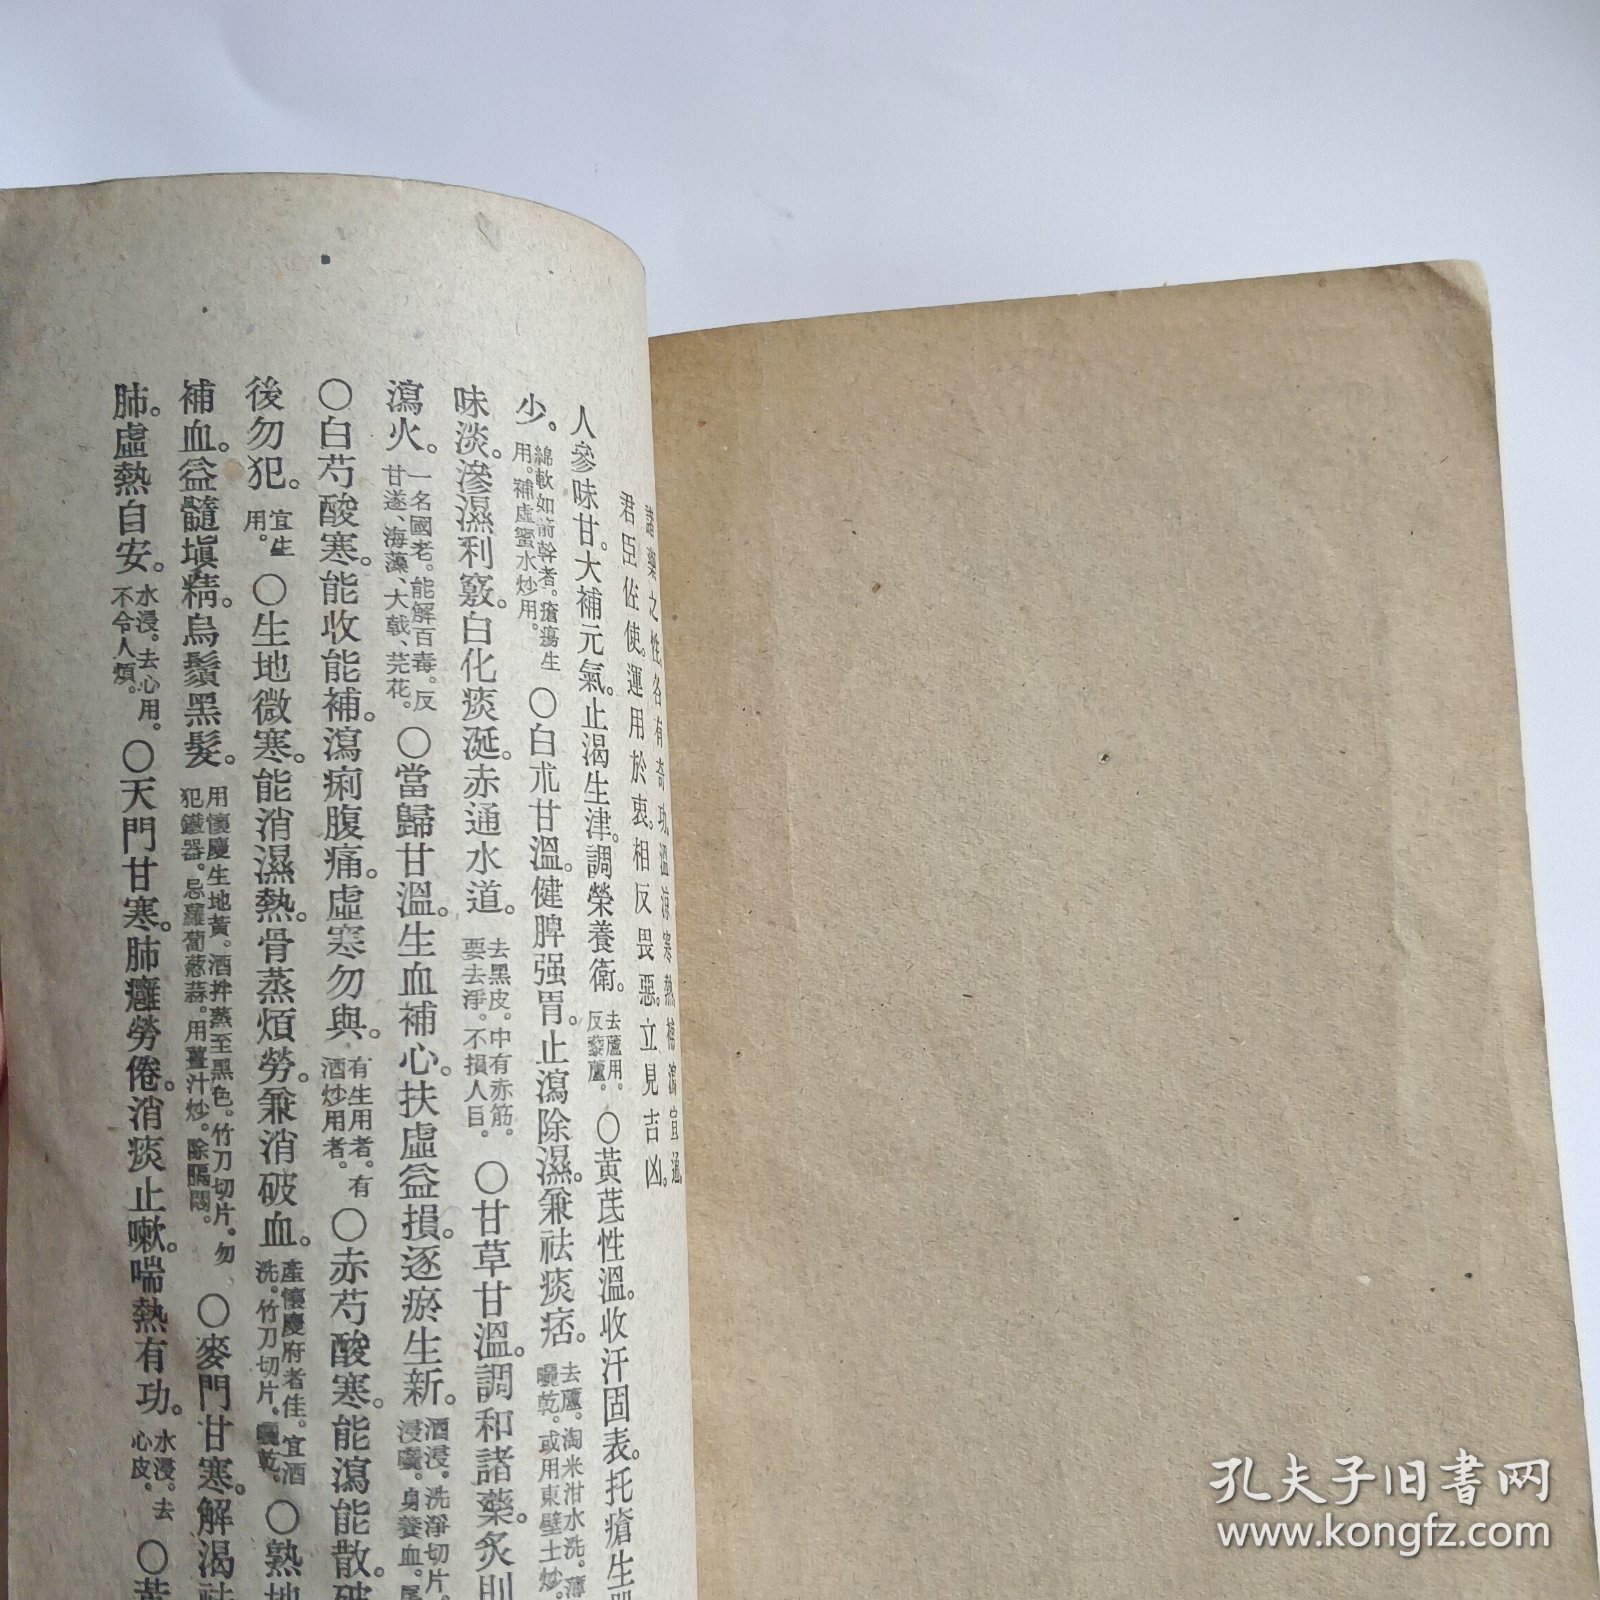 諸藥之性。各有奇功。溫涼寒熱。補瀉宣通。
君臣佐使。運用於衷。相反畏惡。立見吉凶。
人參味甘。大補元氣。止渴生津。調榮養衛。去蘆用。反藜蘆。○黃芪性溫。收汗固表。托瘡生
少。綿軟如箭幹者。瘡瘍生用。補虛蜜水炒用。○白朮甘溫。健脾强胃。止瀉除濕。兼祛痰痞。去蘆。淘米泔水洗。薄曬乾。或用東壁土炒。
味淡。滲濕利竅。白化痰涎。赤通水道。去黑皮。中有赤筋。要去淨。不損人目。○甘草甘溫。調和諸藥。炙則
瀉火。一名國老。能解百毒。反甘遂、海藻、大戟、芫花。○當歸甘溫。生血補心。扶虛益損。逐瘀生新。酒浸。洗淨切片。身養血。
○白芍酸寒。能收能補。瀉痢腹痛。虛寒勿與。有生用者。有酒炒用者。○赤芍酸寒。能瀉能散。破
後勿犯。宜生用。○生地微寒。能消濕熱。骨蒸煩勞。兼消破血。產懷慶府者佳。宜酒洗。竹刀切片。曬乾。○熟地
補血。益髓塡精。烏鬚黑髮。用懷慶生地黃。酒拌蒸至黑色。竹刀切片。勿犯鐵器。忌蘿蔔葱蒜。用薑汁炒。除膈悶。○麥門甘寒。解渴祛
肺。虛熱自安。水浸。去心用。不令人煩。○天門甘寒。肺癰勞倦。消痰止嗽。喘熱有功。水浸。去心皮。○黃
孔夫子旧書网
www.kongfz.com